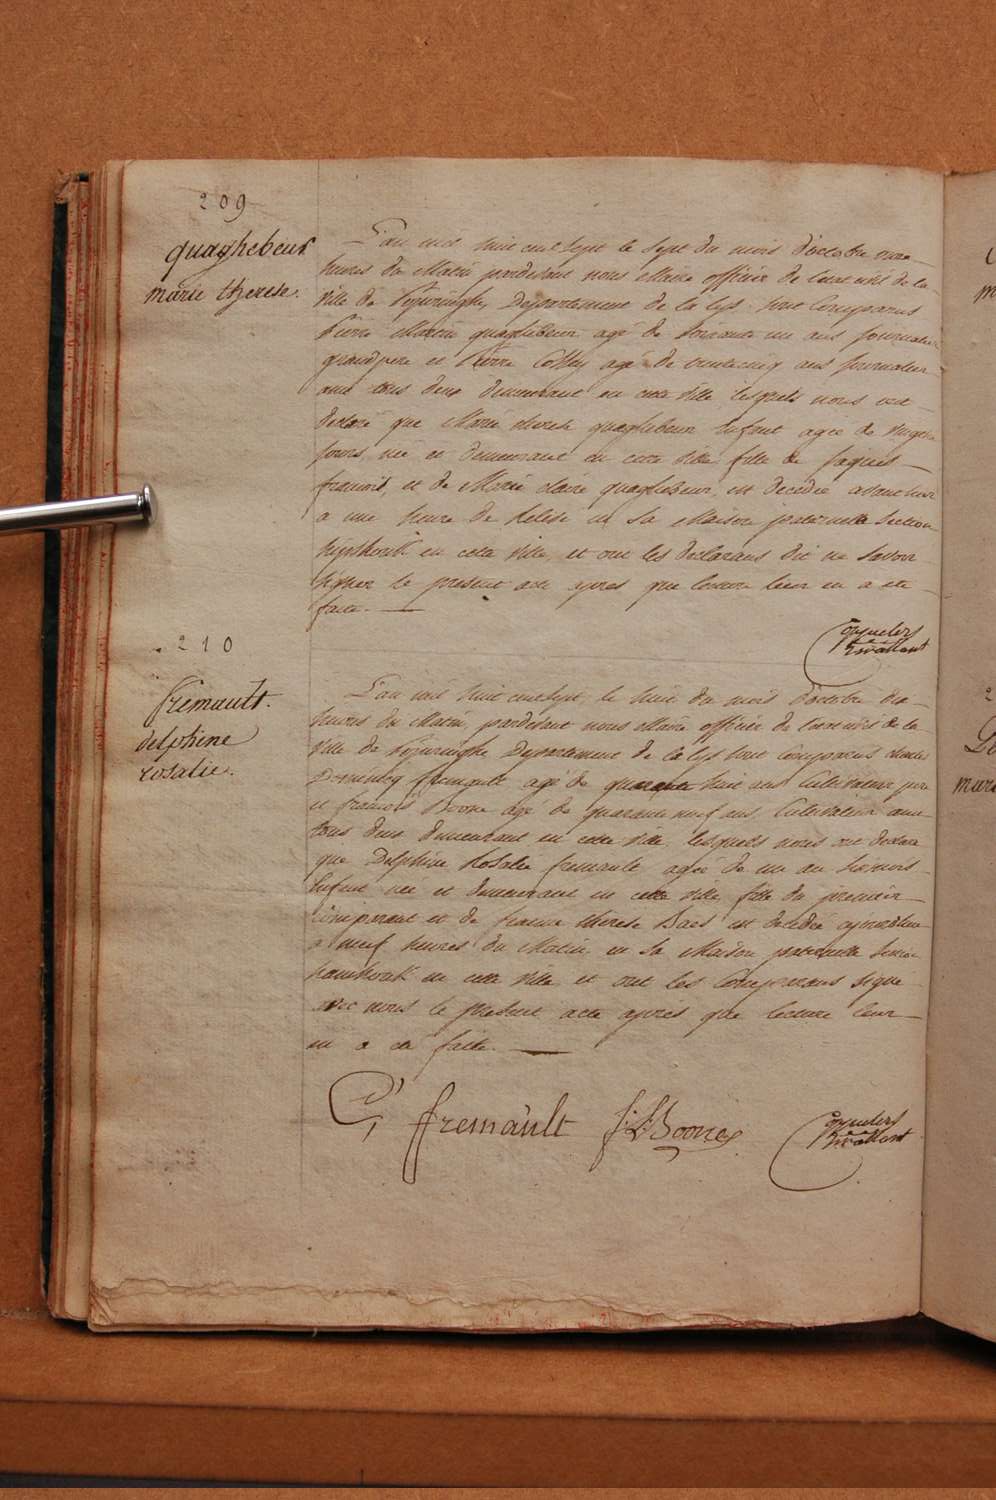 209
quaghebeur
marie therese.
L'an mil huit cent sept le sept du mois d'octobre onze
heures du Matin pardevant nous Maire officier de l'etat civil de la
ville de Poperinghe, Departement de la Lys sont Comparus
Pierre Martin quaghebeur agé de soixante un ans journalier
grandpere et Pierre agé de trentecinq ans journalier
ami tous deux demeurant en cette ville lesquels nous ont
declaré que Marie therese quaghebeur Enfant agée de vingt
jours née et demeurant en cette ville fille de jaques
francois, et de Marie claire quaghebeur, est decedée avant hier
a une heure de relevé en sa Maison paternelle section
en cette ville, et ont les declarans dit ne savoir
signer le present acte apres que lecture leur en a été
faite.
210
fremault.
delphine
rosalie.
L'an mil huit cent sept, le huit du mois d'octobre dix
heures du Matin, pardevant nous Maire officier de l'etat civil de la
ville de Poperinghe Departement de la Lys sont Comparus charles
Dominicq fremault agé de quarante huit ans Cultivateur pere
et francois Boone agé de quarante neuf ans, Cultivateur ami
tous deux demeurant en cette ville, lesquels nous ont declaré
que Delphine Rosalie fremault agée de un an six mois
Enfant née et demeurant en cette ville, fille du premier
Comparant et de therese Baes est decedée aujourdhui
a neuf heures du Matin en sa Maison paternelle section
en cette ville et ont les Comparans signé
avec nous le present acte apres que lecture leur
en a été faite.
fremault Boone